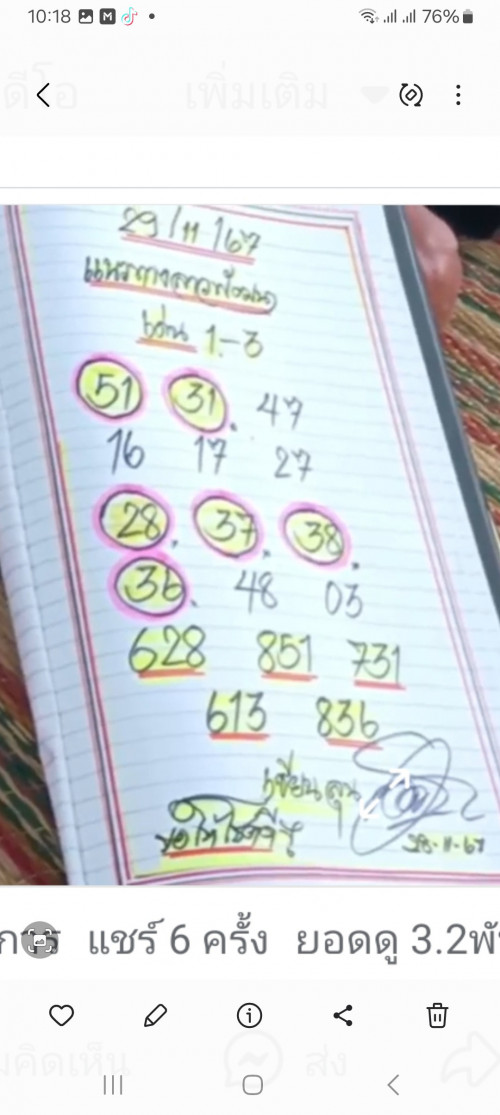 10:18 76%
ดีโอ เพิ่มเติม
29/11/67
เด่น 1-3
51 31. 47
16 17 27
28, 37, 38,
36, 48 03
628 851 731
613 836
เซียนลุน
ขอให้โชคดี
28-11-67
การ แชร์ 6 ครั้ง ยอดดู 3.2พั
มคิดเห็น ส่ง